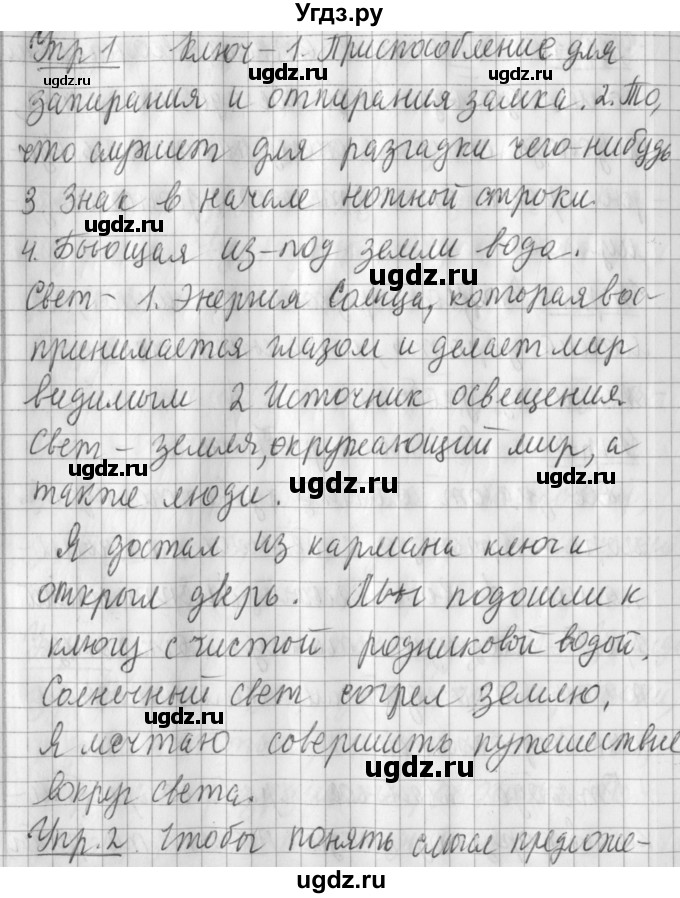 Угдз.ру
Упр 1 Ключ - 1. Приспособление для
запирания и отпирания замка. 2. То,
что служит для разгадки чего-нибудь
3. Знак в начале нотной строки.
4. Бьющая из-под земли вода.
Свет - 1. Энергия Солнца, которая вос-
принимается глазом и делает мир
видимым 2 Источник освещения.
Свет - земля, окружающий мир, а
также люди.
Я достал из кармана ключ и
открыл дверь. Мы подошли к
ключу с чистой родниковой водой.
Солнечный свет согрел землю,
Я мечтаю совершить путешествие
вокруг света.
Упр. 2 Чтобы понять смысл предложе-
ugdz.ru